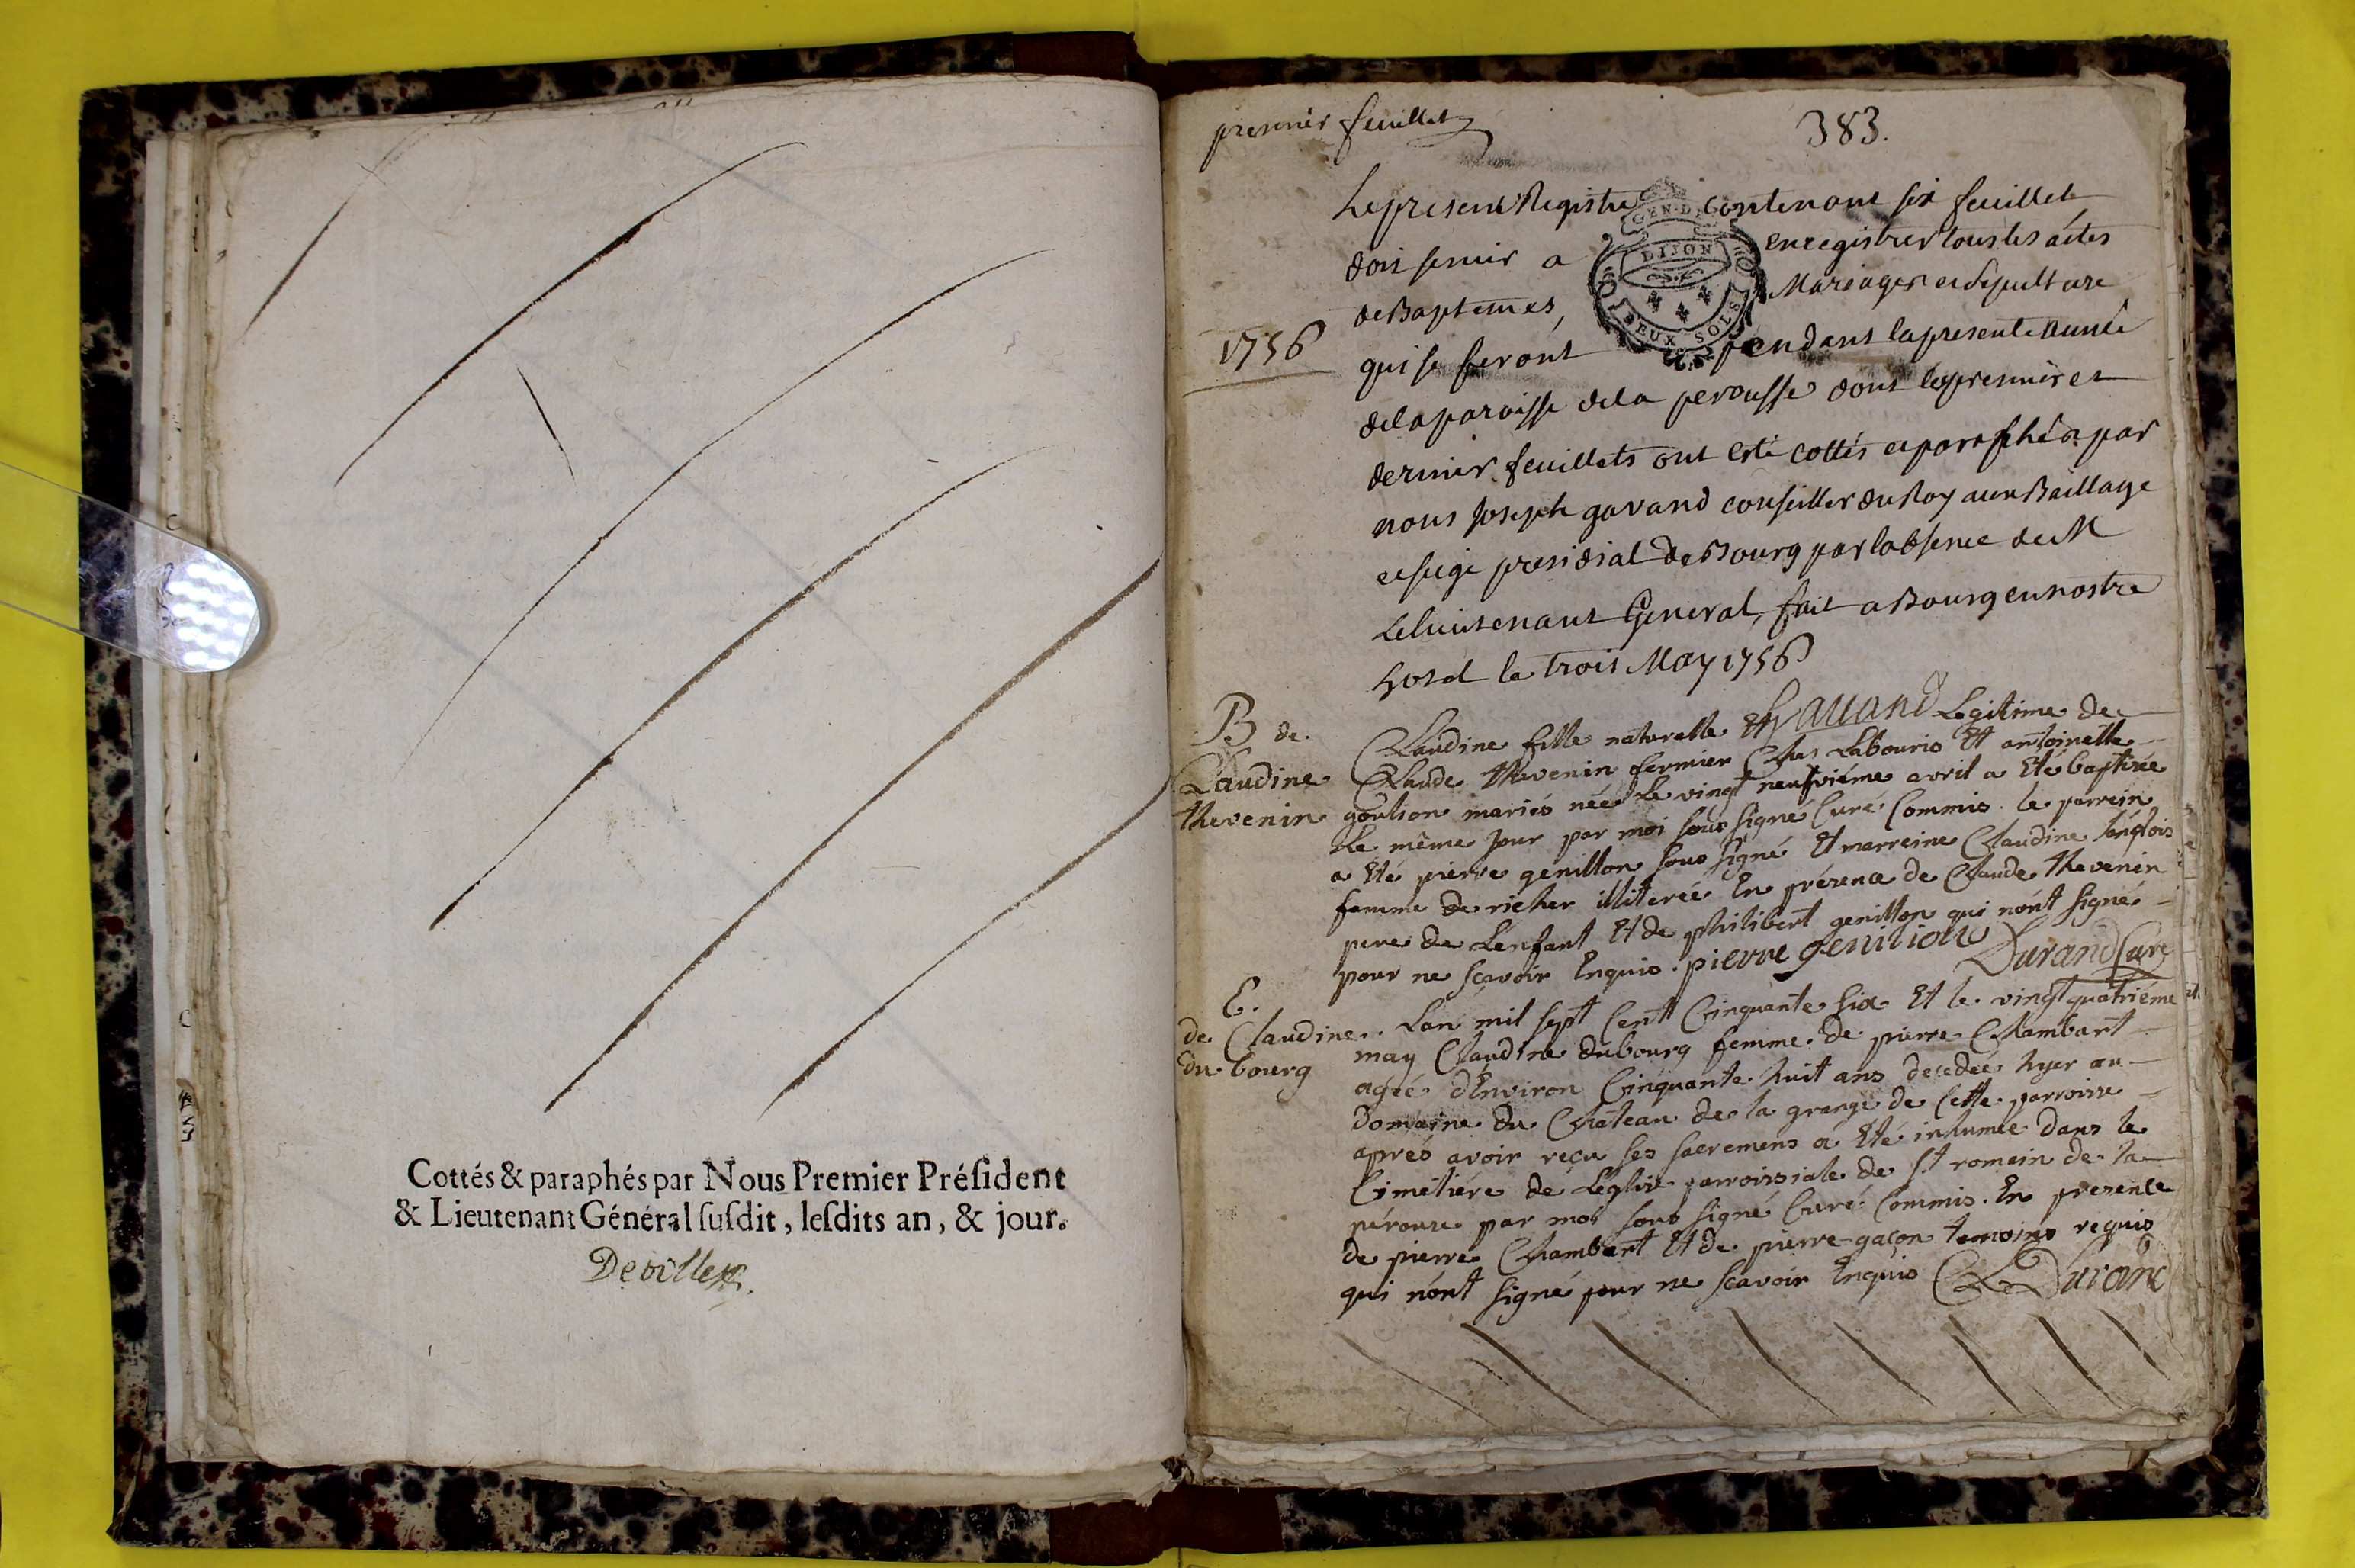 Cottés & paraphés par Nous Premier Préſident
& Lieutenant Général ſuſdit, leſdits an, & jour.
Deville
premier feuillet
383.
Le present Registre contenant six feuillets
doit servir a enregistrer tous les actes
de Baptemes, Mariages et sepulture
1756
qui se feront pendant la presente année
de la paroisse de la perousse dont les premier et
dernier feuillets ont esté cottés et paraphés par
nous Joseph gavand conseiller du Roy au Baillage
et siege presidial de Bourg par l'absence de M
Le lieutenant General, fait a Bourg en nostre
hotel le trois May 1756
Gavand
GEN. D
DIJON
DEUX SOLS
B de
Claudine
thevenin
Claudine fille naturelle Et Legitime de
Claude thevenin fermier Ches Labourio Et antoinette
goulion mariés née Le vingt neufviéme avril a Eté baptisée
Le même jour par moi sous signé Curé Commis. le parrein
a Eté pierre génillon sous signé Et marreine Claudine lánglois
femme de richer illiterée En présence de Claude thevenin
pere de L'enfant Et de philibert genillon qui nónt signé
pour ne sçavoir Enquis. pierre genilion Durand Curé
E.
de Claudine
du bourg
Lan mil sept Cent Cinquante six Et le vingt quatriéme
may Claudine dubourg femme de pierre Chambart
ageé d'Environ Cinquante huit ans decedeé hyer au
Domaine du Château de la grange de Cette parroisse
aprés avoir reçu ses sacremens a Eté inhumée dans le
Cimétiére de L'eglise parroissiale de St romain de la
pérouse par moi sous signé Curé Commis. En presence
de pierre Chambart Et de pierre gaçon temoins requis
qui nónt signé pour ne sçavoir Enquis Durand